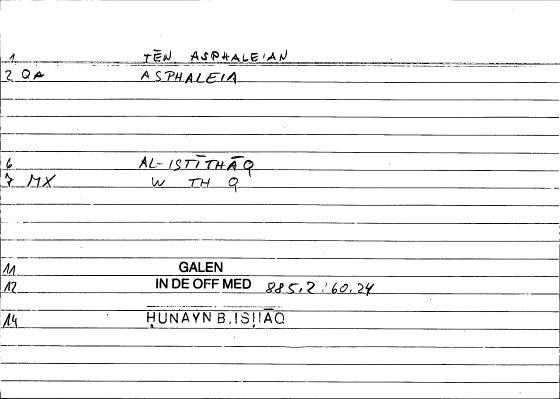 1 TĒN ASPHALEIAN
2 QA ASPHALEIA
6 AL-ISTĪTHĀQ
7 MX W TH Q
11 GALEN
12 IN DE OFF MED 885.2:60.24
14 ḤUNAYN B. ISḤĀQ